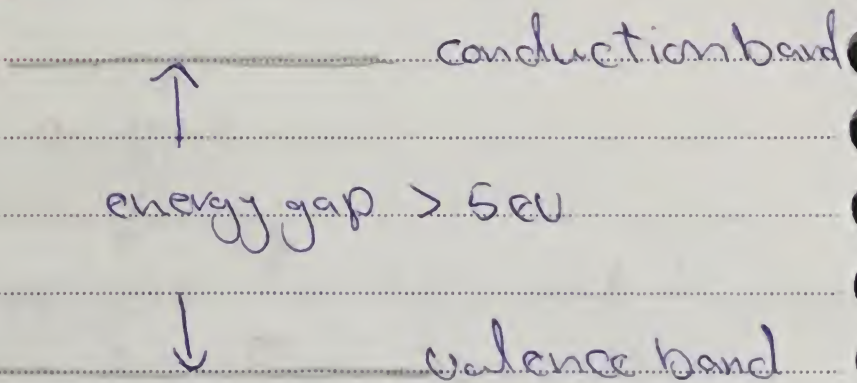 conduction band
energy gap > 5 eV
valence band